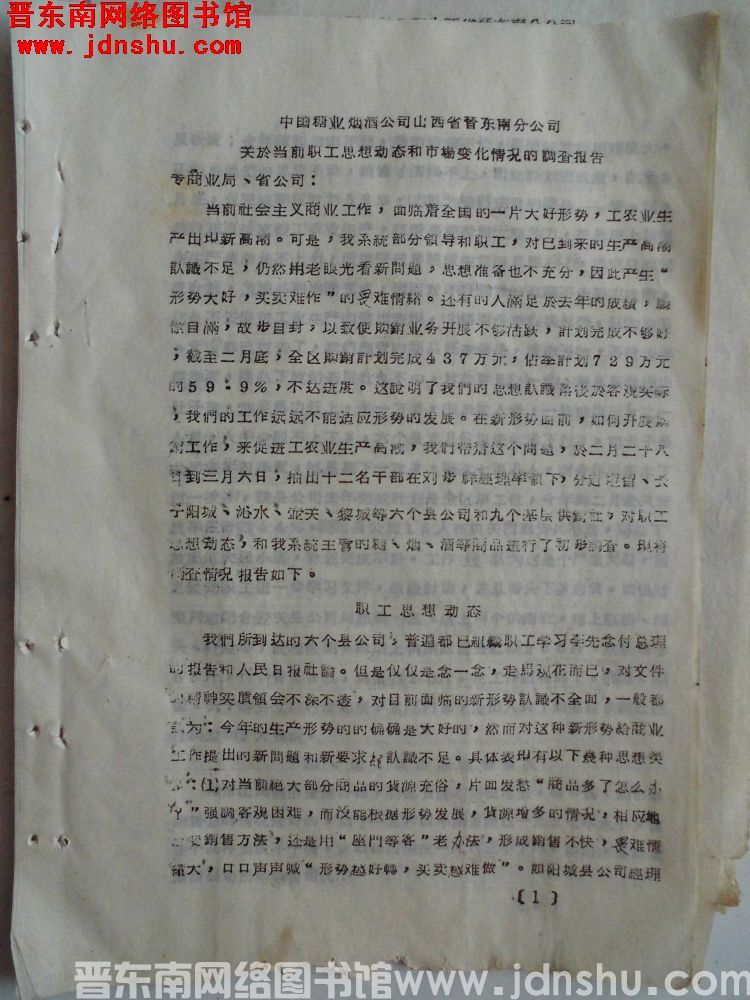 晋东南网络图书馆
www.jdnshu.com
中国糖业烟酒公司山西省晋东南分公司
关於当前职工思想动态和市場变化情况的調查报告
专商业局、省公司：
当前社会主义商业工作，面临着全国的一片大好形势，工农业生
产出现新高潮。可是，我系統部分領导和职工，对已到来的生产高潮
認識不足，仍然用老眼光看新問題，思想准备也不充分，因此产生“
形势大好，买卖难作”的畏难情緒。还有的人滿足於去年的成績，驕
傲自滿，故步自封，以致使购銷业务开展不够活跃，計划完成不够好
，截至二月底，全区购銷計划完成４３７万元，佔季計划７２９万元
的５９·９％，不达进度。这說明了我們的思想認識落後於客观实际
，我們的工作远远不能适应形势的发展。在新形势面前，如何开展购
銷工作，来促进工农业生产高潮，我們带着这个問題，於二月二十八
日到三月六日，抽出十二名干部在刘步 經理率領下，分赴屯留、长
子阳城、沁水、壶关、黎城等六个县公司和九个基层供銷社，对职工
思想动态，和我系統主营的糖、烟、酒等商品进行了初步調查。现将
調查情况报告如下。
职工思想动态
我們所到达的六个县公司，普遍都已組織职工学习李先念付总理
的报告和人民日报社論。但是仅仅是念一念，走馬观花而已，对文件
的精神实质領会不深不透，对目前面临的新形势認識不全面，一般都
認为：今年的生产形势的的确确是大好的，然而对这种新形势給商业
工作提出的新問題和新要求却認識不足。具体表现有以下幾种思想类
型：⑴对当前絕大部分商品的货源充俗，片面发愁“商品多了怎么办
”强調客观困难，而没能根据形势发展，货源增多的情况，相应地
改变銷售方法，还是用“座門等客”老办法，形成銷售不快，畏难情
緒大，口口声声喊“形势越好轉，买卖越难做”。如阳城县公司經理
〔１〕
晋东南网络图书馆 www.jdnshu.com